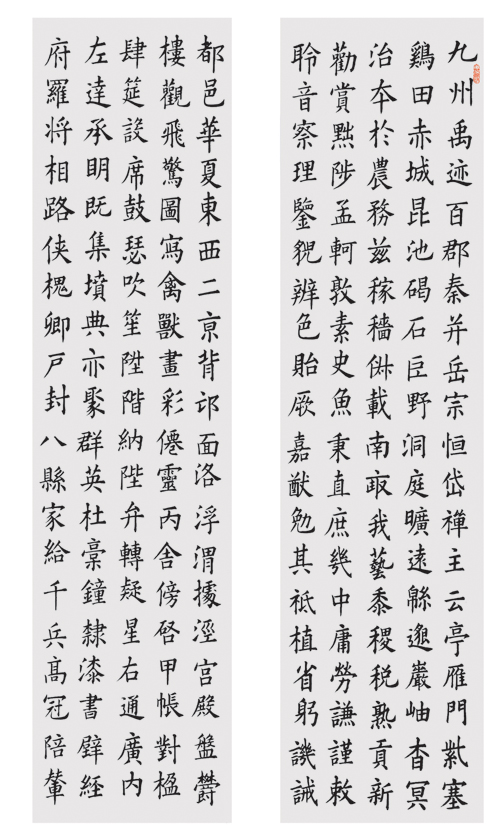 九州禹迹百郡秦并岳宗恒岱禪主云亭雁門紫塞
鷄田赤城昆池碣石巨野洞庭曠遠緜邈巖岫杳冥
治夲於農務兹稼穡俶載南畝我藝黍稷税熟貢新
勸賞黜陟孟軻敦素史魚秉直庶幾中庸勞謙謹敕
聆音察理鑒貌辨色貽厥嘉猷勉其祗植省躬譏誡
都邑華夏東西二亰背邙面洛浮渭據涇宫殿盤鬱
樓觀飛驚圖寫禽獸畫彩僊靈丙舍傍啓甲帳對楹
肆筵設席鼓瑟吹笙陞階納陛弁轉疑星右通廣内
左達承眀既集墳典亦聚群英杜稾鐘隸漆書壁経
府羅将相路侠槐卿戶封八縣家給千兵髙冠陪輦